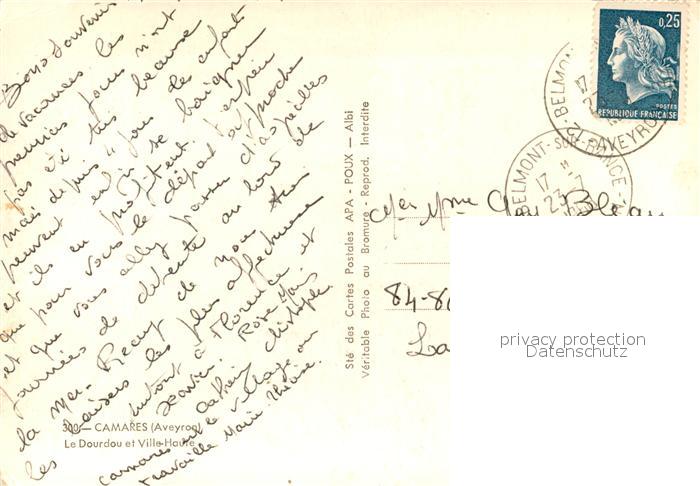 Bons souvenirs
de vacances. Les
premiers jours n'ont
pas été très beaux
mais depuis 4 jours les enfants
peuvent enfin se baigner
et ils en profitent. J'espère
que pour vous le départ approche
et que vous allez passer d'agréables
journées de détente au bord de
la mer. Recevez de nous tous
les baisers les plus affectueux
surtout à Florence et
Xavier. Rose Marie
Catherine Christophe
Camarès est le village où
travaille Marie Thérèse.
300 — CAMARES (Aveyron)
Le Dourdou et Ville-Haute
Sté des Cartes Postales APA - POUX — Albi
Véritable Photo au Bromure - Reprod. Interdite
0,25
POSTES
REPUBLIQUE FRANÇAISE
BELMONT
17
AVEYRON
BELMONT-SUR-RANCE
17 H
23-7
Mme Guy
84-8
La
privacy protection
Datenschutz